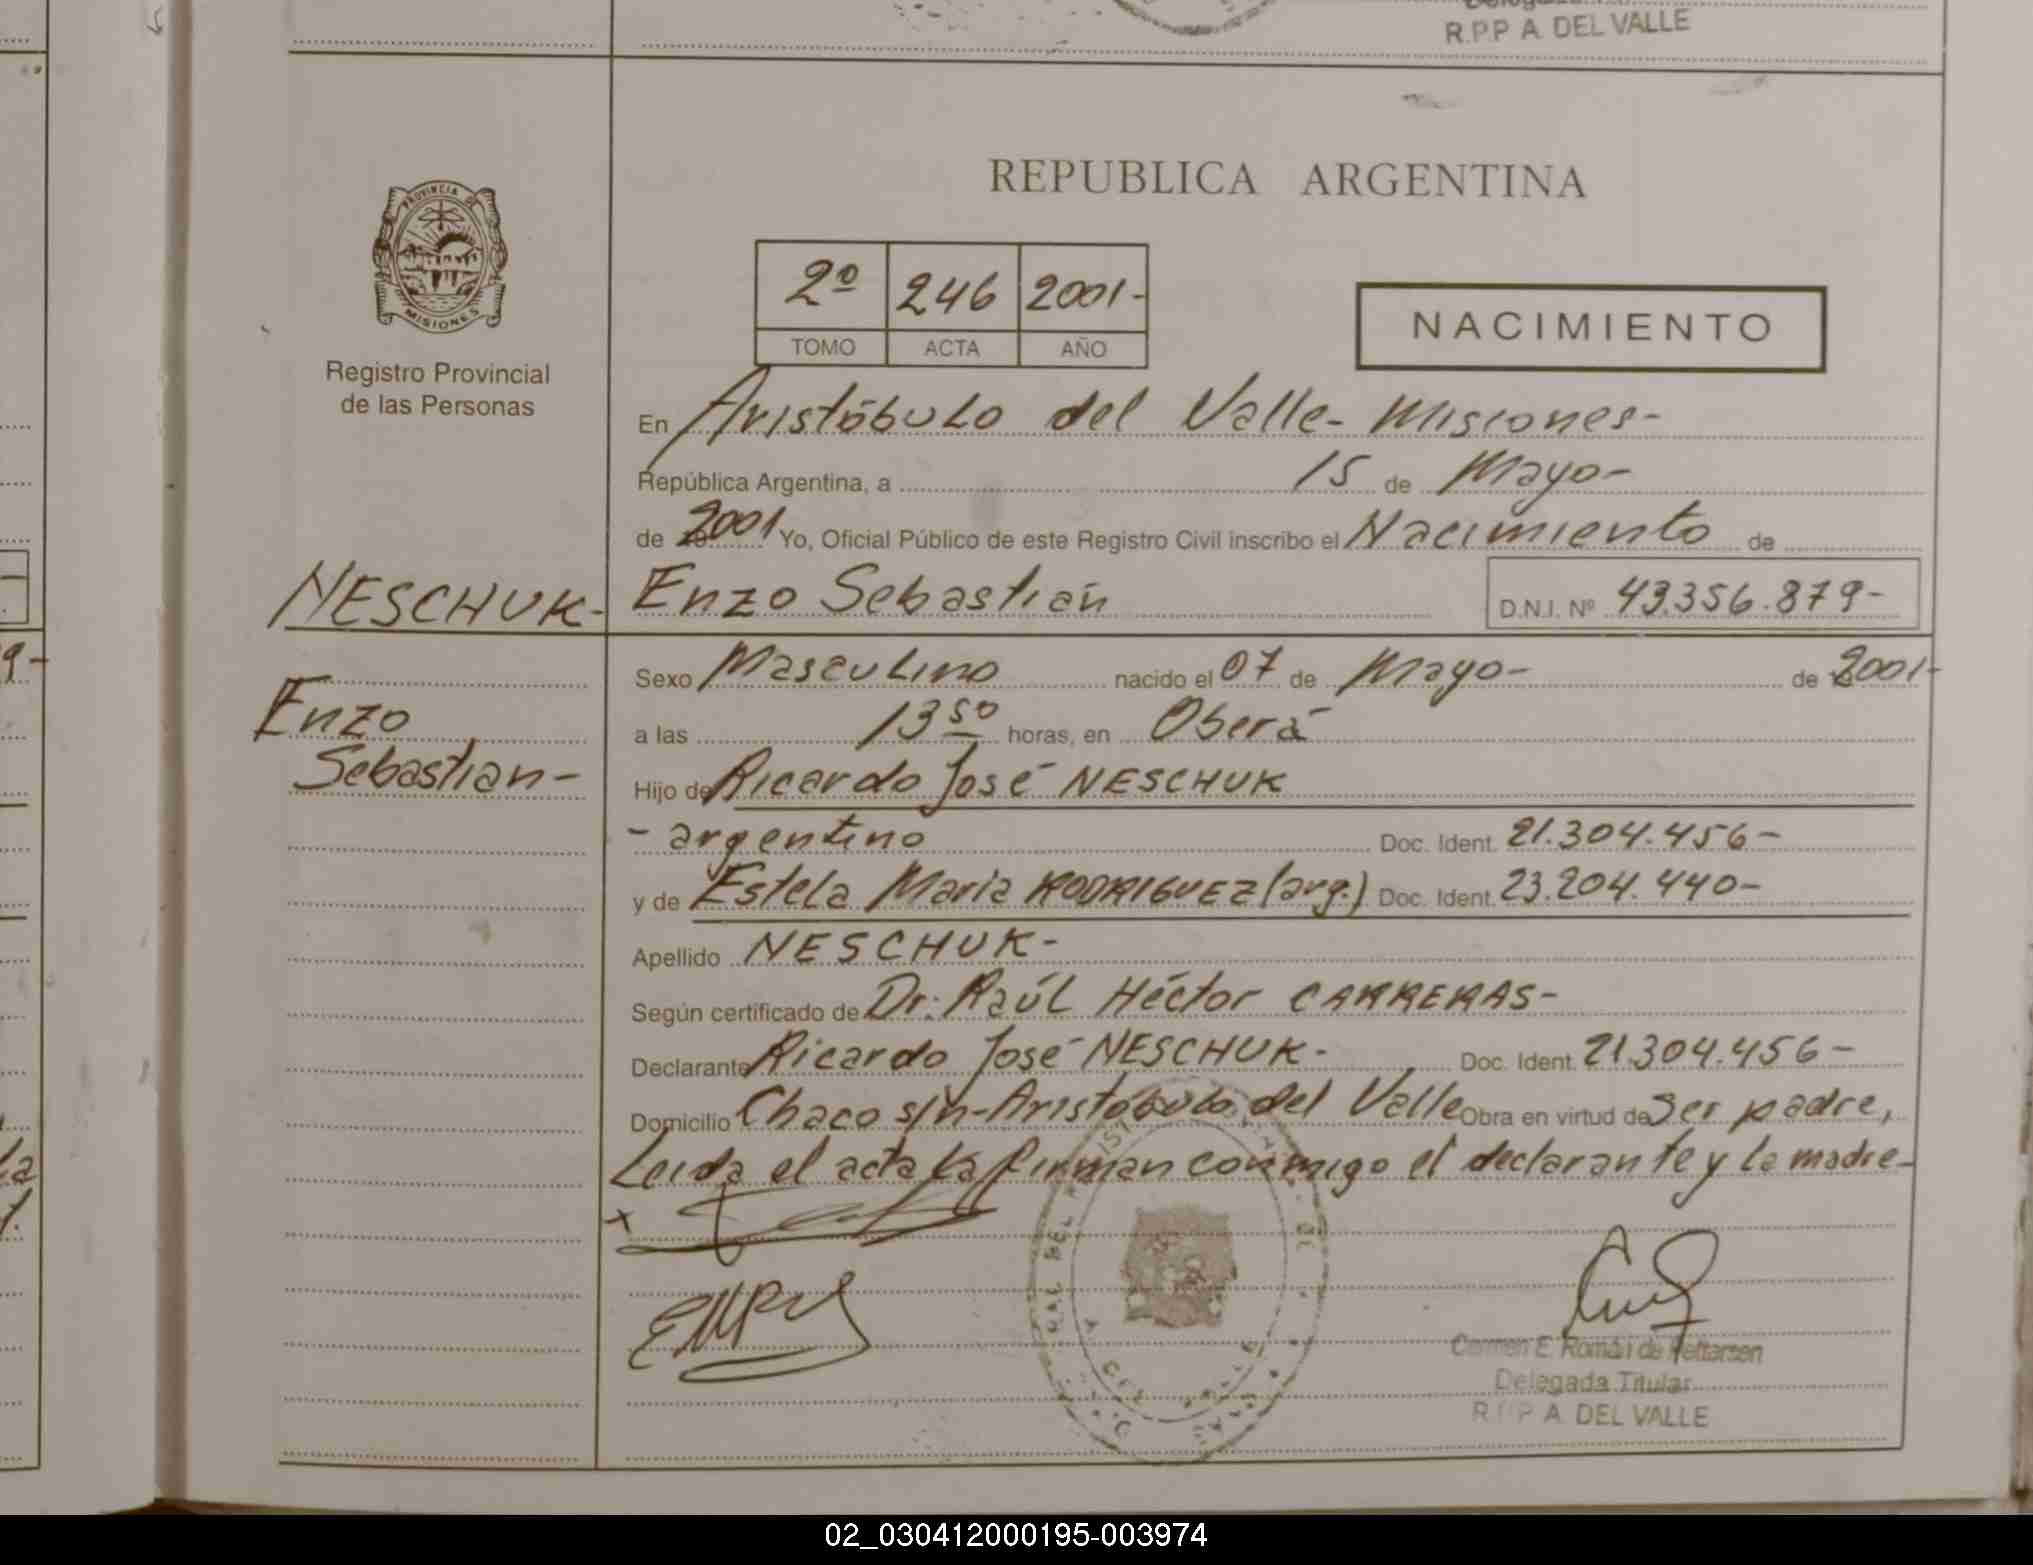 R.P.P A. DEL VALLE
REPUBLICA ARGENTINA
PROVINCIA DE
MISIONES
Registro Provincial
de las Personas
2º 246 2001-
TOMO ACTA AÑO
NACIMIENTO
En Aristóbulo del Valle- Misiones-
República Argentina, a 15 de Mayo-
de 2001 Yo, Oficial Público de este Registro Civil inscribo el Nacimiento de
NESCHUK- Enzo Sebastián D.N.I. Nº 43.356.879-
Enzo
Sebastian-
Sexo Masculino nacido el 07 de Mayo- de 2001-
a las 13 50 horas, en Oberá
Hijo de Ricardo José NESCHUK
- argentino Doc. Ident. 21.304.456-
y de Estela Maria RODRIGUEZ (arg.) Doc. Ident. 23.204.440-
Apellido NESCHUK-
Según certificado de Dr. Raúl Héctor CARRERAS-
Declarante Ricardo José NESCHUK- Doc. Ident. 21.304.456-
Domicilio Chaco s/n- Aristóbulo del Valle Obra en virtud de ser padre,
Leida el acta la firman conmigo el declarante y la madre-
Carmen E. Román de
Delegada Titular
A. DEL VALLE
02_030412000195-003974